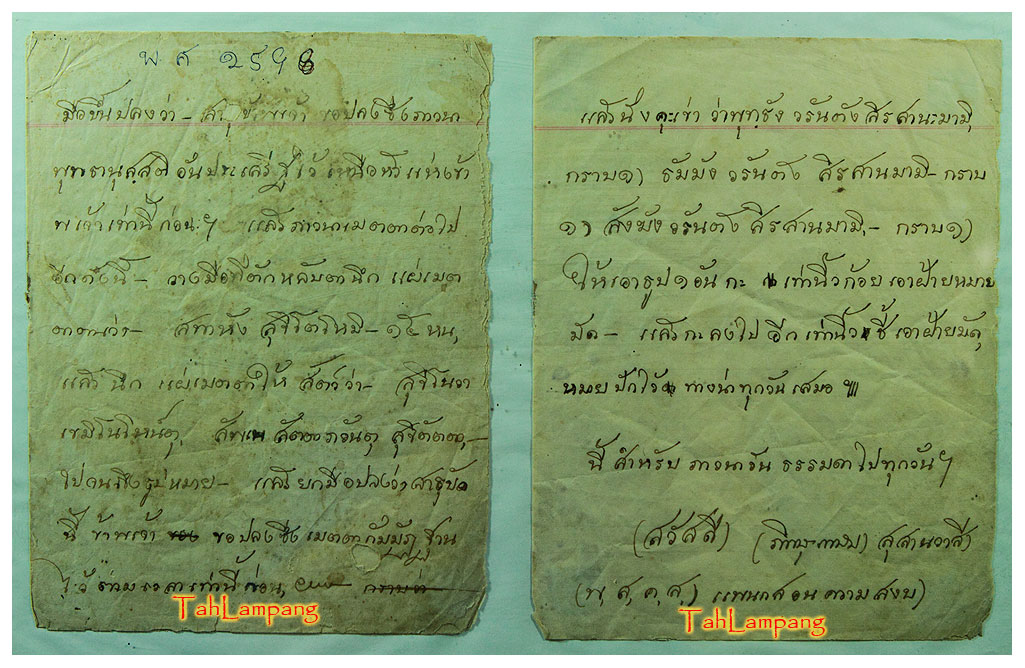 พ ศ ๒๔๙๘
มือขึ้นปลงว่า – สาธุ ข้าพเจ้า ขอปลงซึ่งภาวนา
พุทธานุสสติ อันประเสริฐไว้ เหนือหัว แห่งข้า
พเจ้าเท่านี้ก่อนฯ แล้วภาวนาเมตตาต่อไป
อีกดังนี้ – วางมือที่ตัก หลับตานึก แผ่เมต
ตาตนว่า – สุขิโตโหมิ – ๑๕ หน,
แล้วนึก แผ่เมตตาให้ สัตว์ว่า – สุขิโนวา
เขมิโนโหน์ตุ, สัพเพ สัตตาภวันตุ สุขิตัตตา, –
ไปจนถึงธูปหมาย – แล้วยกมือปลงว่าสาธุบัด
นี้ ข้าพเจ้า ขอปลงซึ่ง เมตตากัมมัฏฐาน
ไว้ เท่านี้ก่อน,
TahLampang
แล้วนั่งคุะเข่า ว่าพุทธัง วรันตัง สิรสานะมามิ
กราบ๑) ธัมมัง วรันตัง สิรสานมามิ – กราบ
๑) สังฆัง วรันตัง สิรสานมามิ, – กราบ๑)
ให้เอาธูป๑อัน กะ เท่านิ้วก้อย เอาฝ้ายหมาย
มัด – แล้วกะลงไป อีก เท่านิ้วชี้ เอาฝ้ายมัด,
หมาย ปักไว้ ทางน่าทุกวัน เสมอ
นี้ สำหรับ ภาวนาวัน ธรรมดาไปทุกวันฯ
(สวัสสี) (ภิกขุ เกษม) สุสานวาสี
(พ, ส, ค, ส,) แพนกสอนความสงบ)
TahLampang